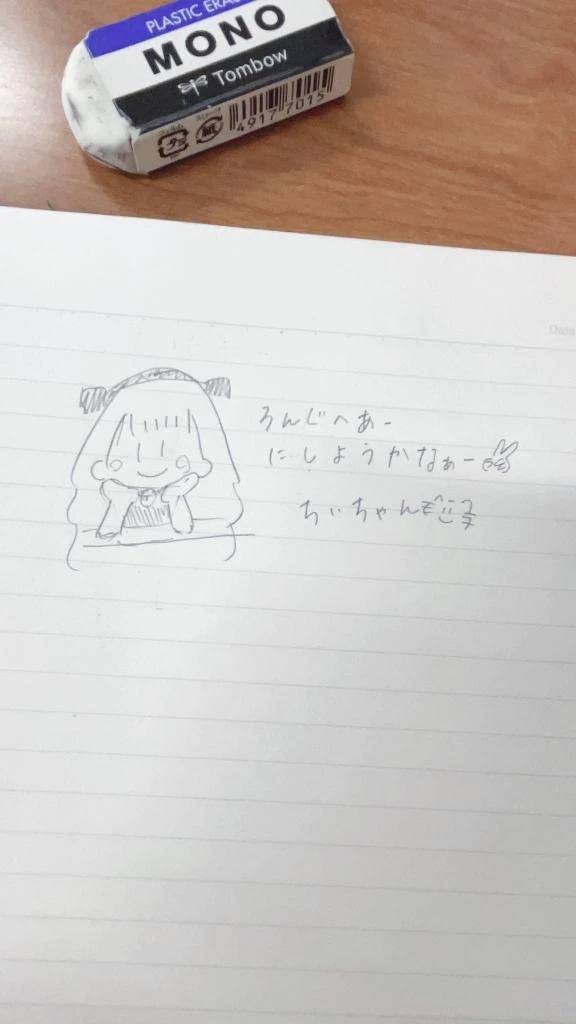 PLASTIC ERAS
MONO
Tombow
4917 7015
ろんじへあー
にしようかなぁー
ちぃちゃん